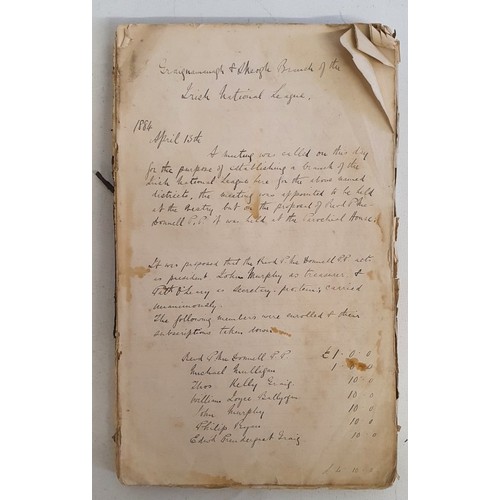 Graignamanagh & Skeogh Branch of the
Irish National League.
1884
April 13th
A meeting was called on this day
for the purpose of establishing a branch of the
Irish National League here for the above named
districts, the meeting was appointed to be held
at the but on the proposal of Revd P Mc
Donnell P.P. it was held at the Parochial House.
It was proposed that the Revd P. Mc Donnell P.P. act
as president John Murphy as treasurer &
Patk O'Leary as secretary, pro. tem; carried
unanimously.
The following members were enrolled & their
subscriptions taken down
Revd P. Mc Donnell P.P. £1 . 0 . 0
Michael Mulligan 1 . 0 . 0
Thos Kelly Graig 10 . 0
William Joyce 10 . 0
John Murphy 10 . 0
Philip Ryan 10 . 0
Edwd Prendergast Graig 10 . 0
10 0